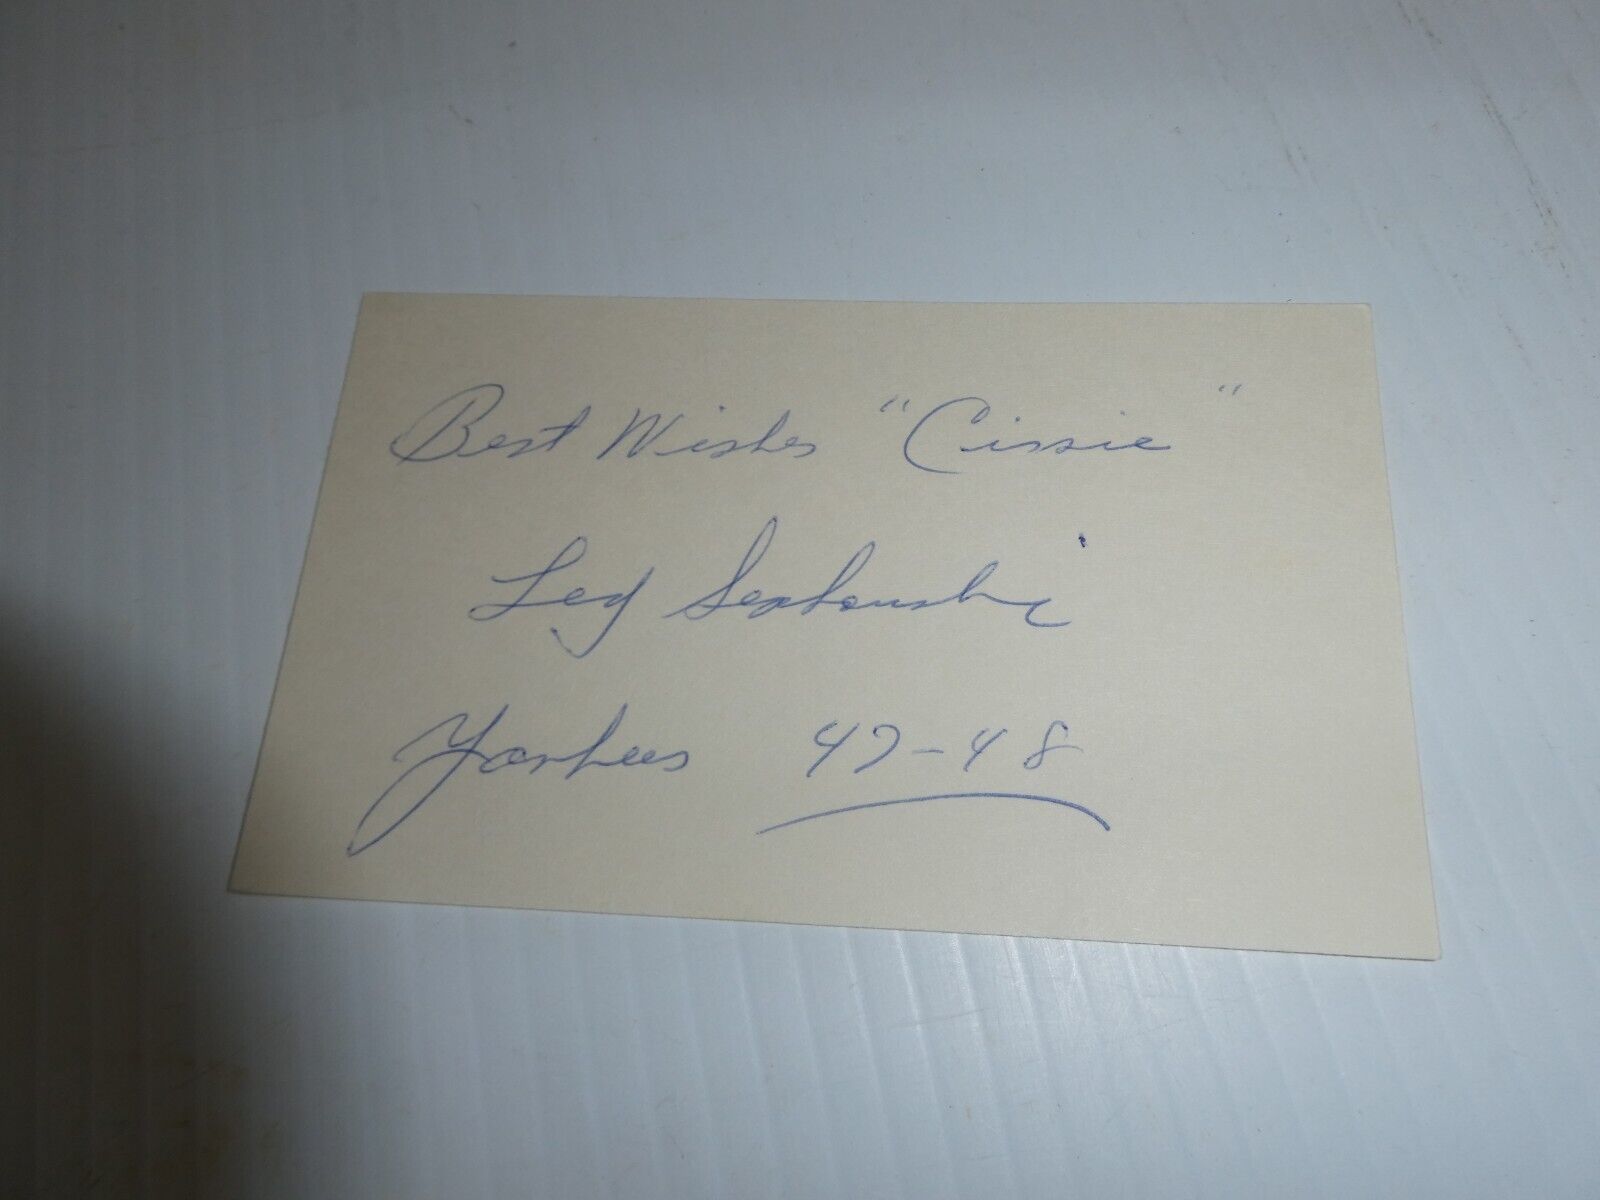 Best Wishes "Cissie"
Ted Sepkowski
Yankees 47-48